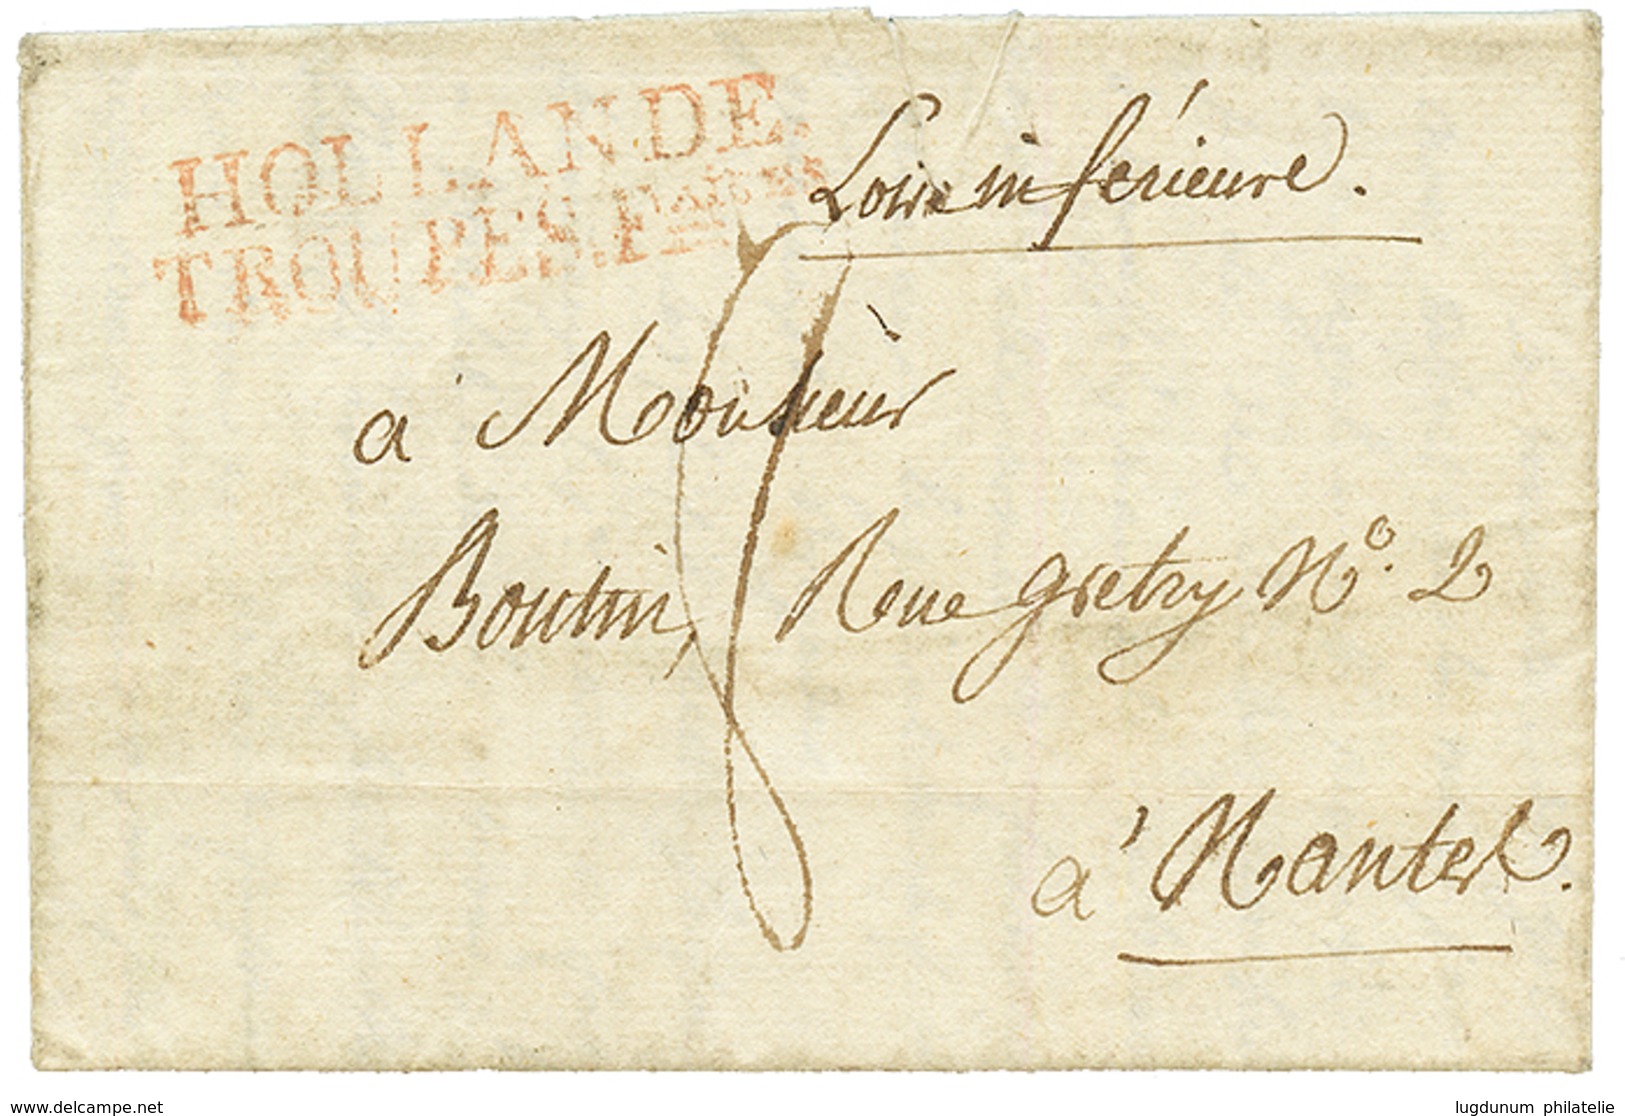 HOLLANDE.
TROUPES.Fcaises
Loire inférieure.
8
à Monsieur
Boutin, Rue gretry N°. 2
à Nantes.
delcampe.net
lugdunum philatelie